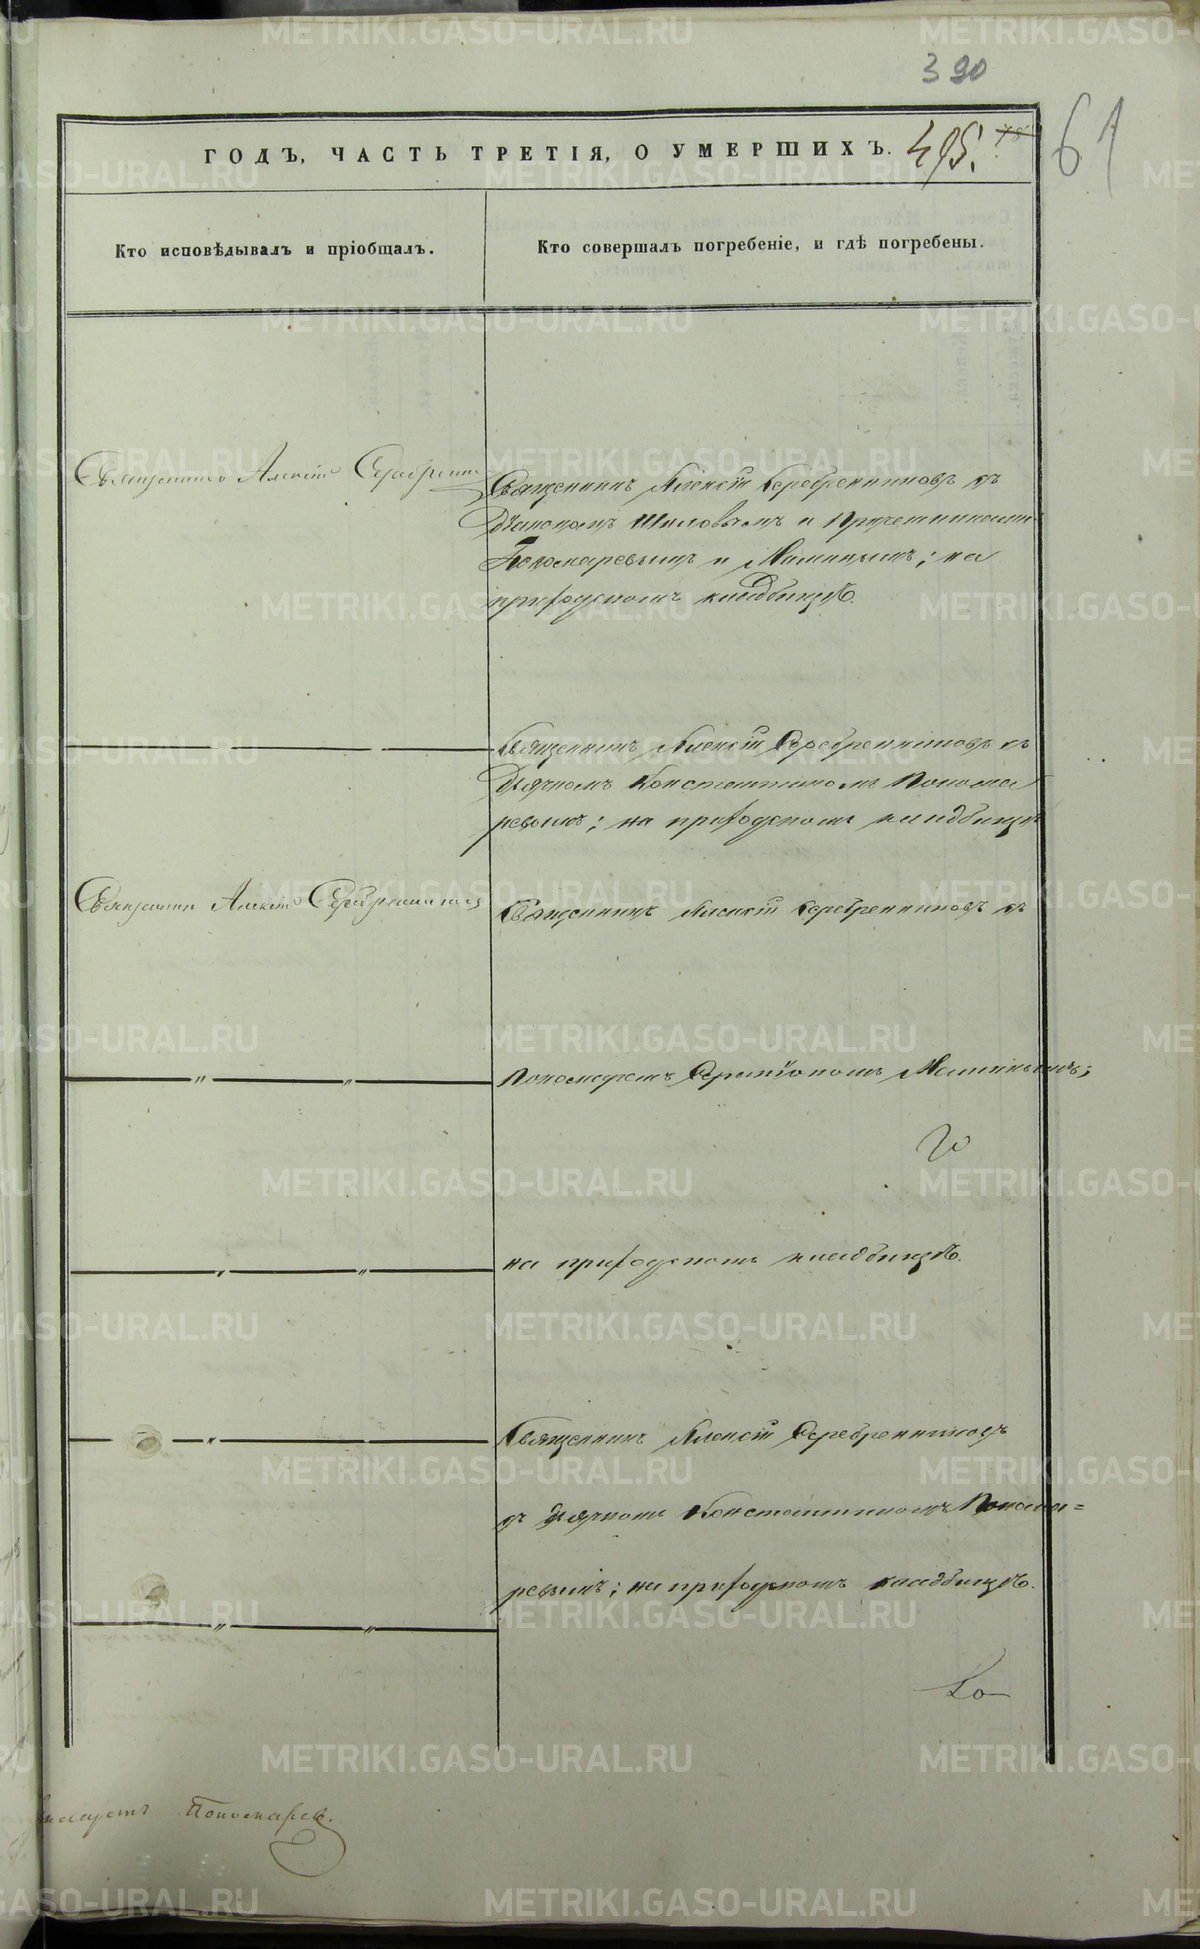 390
ГОДЪ, ЧАСТЬ ТРЕТІЯ, О УМЕРШИХЪ. 495.
61
Кто исповѣдывалъ и пріобщалъ.
Кто совершалъ погребеніе, и гдѣ погребены.
Священникъ Алексѣй Серебрен
Священникъ Алексѣй Серебренниковъ съ
Діакономъ Шиловымъ и Причетниками
Пономаревымъ и Мамінымъ; на
приходскомъ кладбищѣ.
Священникъ Алексѣй Серебренниковъ съ
Дьячкомъ Константиномъ Понома
ревымъ; на приходскомъ кладбищѣ
Священникъ Алексѣй Серебренниковъ
Священникъ Алексѣй Серебренниковъ съ
Пономаремъ
на приходскомъ кладбищѣ.
Священникъ Алексѣй Серебренниковъ
съ Дьячкомъ Константиномъ Понома=
ревымъ; на приходскомъ кладбищѣ.
Ко
Пономарев.
METRIKI.GASO-URAL.RU